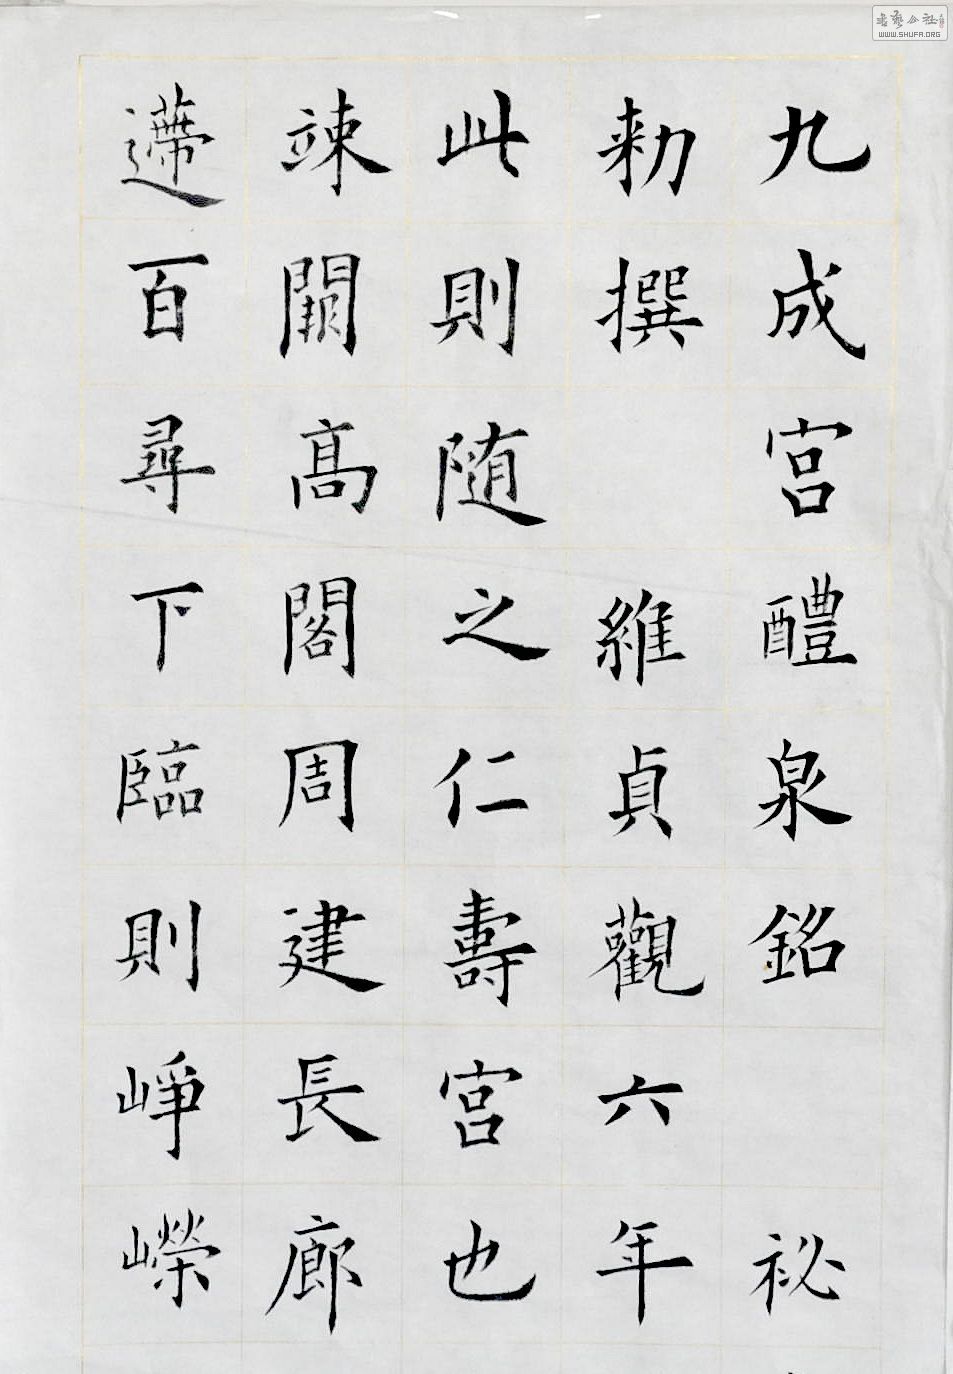 九成宮醴泉銘 祕
勑撰 維貞觀六年
此則随之仁壽宮也
竦闕高閣周建長廊
百尋下臨則崢嶸
書艺公社
WWW.SHUFA.ORG